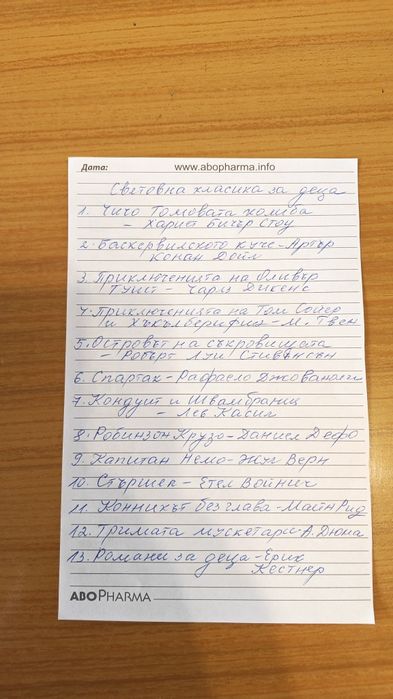 Дата: www.abopharma.info
Световна класика за деца
1. Чичо Томовата колиба
- Хариет Бичър Стоу
2. Баскервилското куче - Артър
Конан Дойл
3. Приключенията на Оливър
Туист - Чарлз Дикенс
4. Приключенията на Том Сойер
и Хъкълберифин - М. Твен
5. Островът на съкровищата
- Робърт Луи Стивънсън
6. Спартак - Рафаело Джованьоли
7. Кондуит и Швамбрания
- Лев Касил
8. Робинзон Крузо - Даниел Дефо
9. Капитан Немо - Жул Верн
10. Стършел - Етел Войнич
11. Конникът без глава - Майн Рид
12. Тримата мускетари - А. Дюма
13. Романи за деца - Ерих
Кестнер
ABOPHARMA